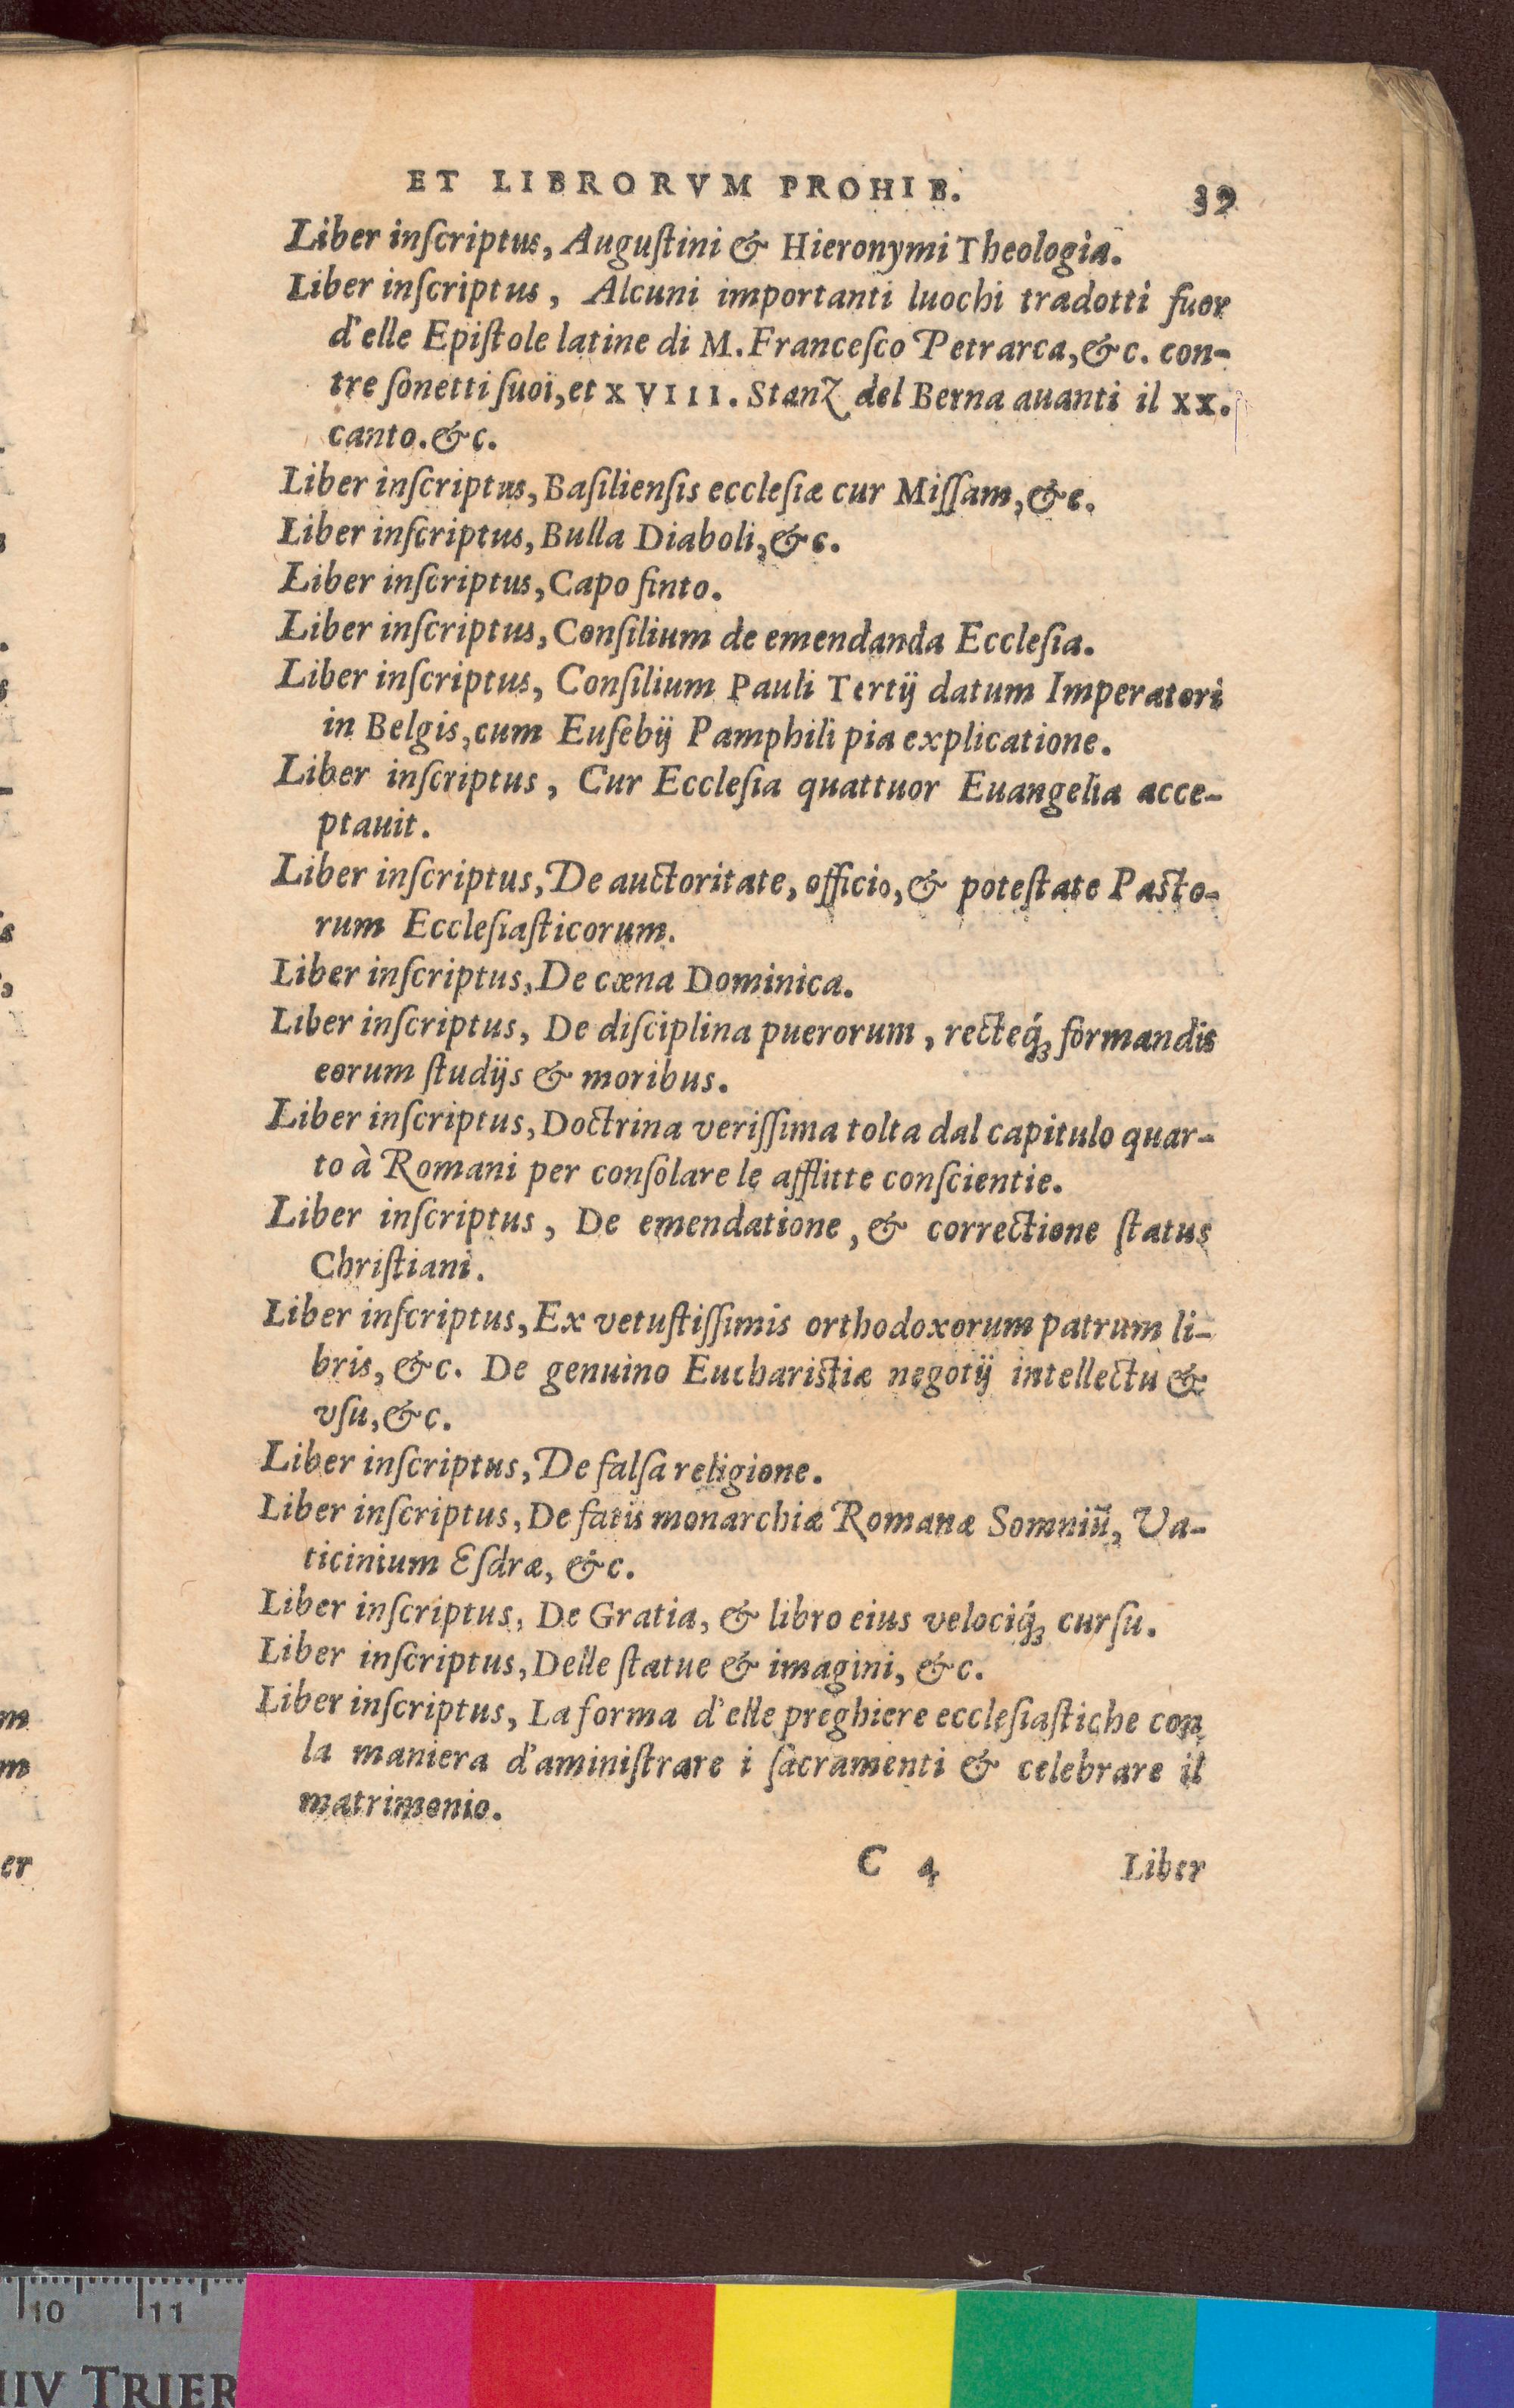 ET LIBRORVM PROHIB. 39
Liber inſcriptus, Auguſtini & Hieronymi Theologia.
Liber inſcriptus, Alcuni importanti luochi tradotti fuor
d'elle Epiſtole latine di M. Franceſco Petrarca, &c. con-
tre ſonetti ſuoi, et XVIII. Stanz del Berna auanti il XX.
canto. &c.
Liber inſcriptus, Baſilienſis eccleſiæ cur Miſſam, &c.
Liber inſcriptus, Bulla Diaboli, &c.
Liber inſcriptus, Capo finto.
Liber inſcriptus, Conſilium de emendanda Eccleſia.
Liber inſcriptus, Conſilium Pauli Tertij datum Imperatori
in Belgis, cum Euſebij Pamphili pia explicatione.
Liber inſcriptus, Cur Eccleſia quattuor Euangelia acce-
ptauit.
Liber inſcriptus, De auctoritate, officio, & poteſtate Paſto-
rum Eccleſiaſticorum.
Liber inſcriptus, De cœna Dominica.
Liber inſcriptus, De diſciplina puerorum, recteq́ꝫ formandis
eorum ſtudijs & moribus.
Liber inſcriptus, Doctrina veriſſima tolta dal capitulo quar-
to à Romani per conſolare le afflitte conſcientie.
Liber inſcriptus, De emendatione, & correctione ſtatus
Chriſtiani.
Liber inſcriptus, Ex vetuſtiſſimis orthodoxorum patrum li-
bris, &c. De genuino Euchariſtiæ negotij intellectu &
vſu, &c.
Liber inſcriptus, De falſa religione.
Liber inſcriptus, De fatis monarchiæ Romanæ Somniũ, Va-
ticinium Eſdræ, &c.
Liber inſcriptus, De Gratia, & libro eius velociq́ꝫ curſu.
Liber inſcriptus, Delle ſtatue & imagini, &c.
Liber inſcriptus, La forma d'elle preghiere eccleſiaſtiche con
la maniera d'aminiſtrare i ſacramenti & celebrare il
matrimonio.
C 4 Liber
er
10 11
IV TRIER